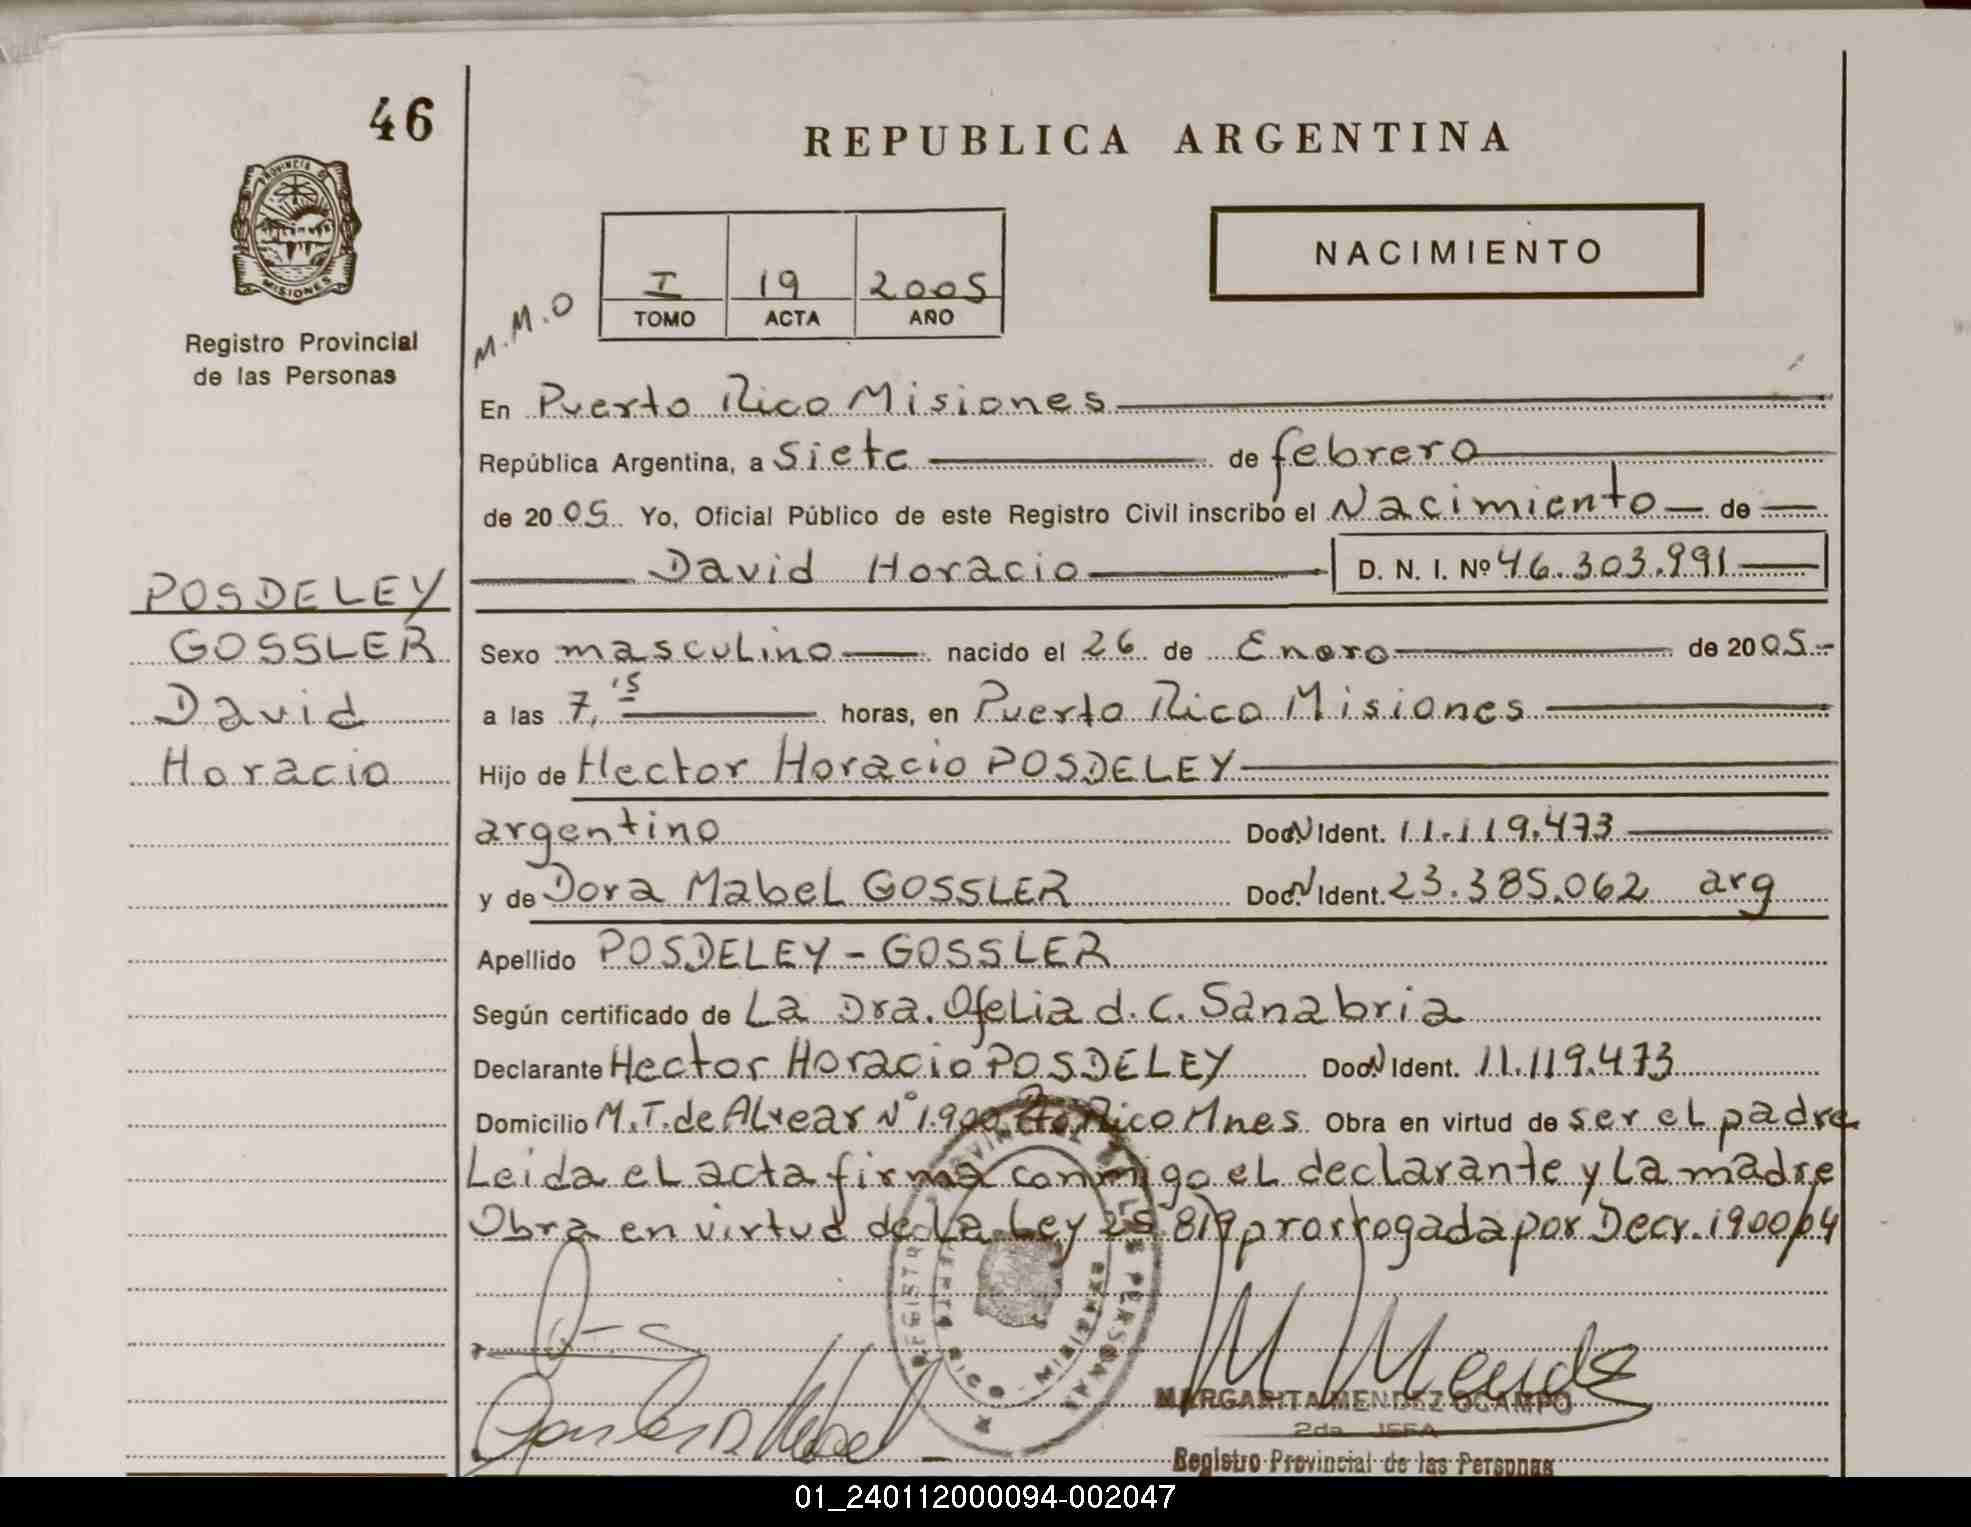 46
REPUBLICA ARGENTINA
PROVINCIA DE
MISIONES
NACIMIENTO
I 19 2005
TOMO ACTA AÑO
M.M.O
Registro Provincial
de las Personas
En Puerto Rico Misiones
República Argentina, a Siete de febrero
de 2005 Yo, Oficial Público de este Registro Civil inscribo el Nacimiento de
David Horacio D. N. I. Nº 46.303.991
POSDELEY
GOSSLER
David
Horacio
Sexo masculino nacido el 26 de Enero de 2005.-
a las 7,15 horas, en Puerto Rico Misiones
Hijo de Hector Horacio POSDELEY
argentino Doc.N Ident. 11.119.473
y de Dora Mabel GOSSLER Doc.N Ident. 23.385.062 arg
Apellido POSDELEY - GOSSLER
Según certificado de La Dra. Ofelia d. C. Sanabria
Declarante Hector Horacio POSDELEY Doc.N Ident. 11.119.473
Domicilio M.T. de Alvear N° 1.900 Pto Rico Mnes Obra en virtud de ser el padre
Leida el acta firma conmigo el declarante y La madre
Obra en virtud de La Ley 25.819 prorrogada por Decr. 1900/04
MARGARITA MENDEZ OCAMPO
2da JEFA
Registro Provincial de las Personas
01_240112000094-002047